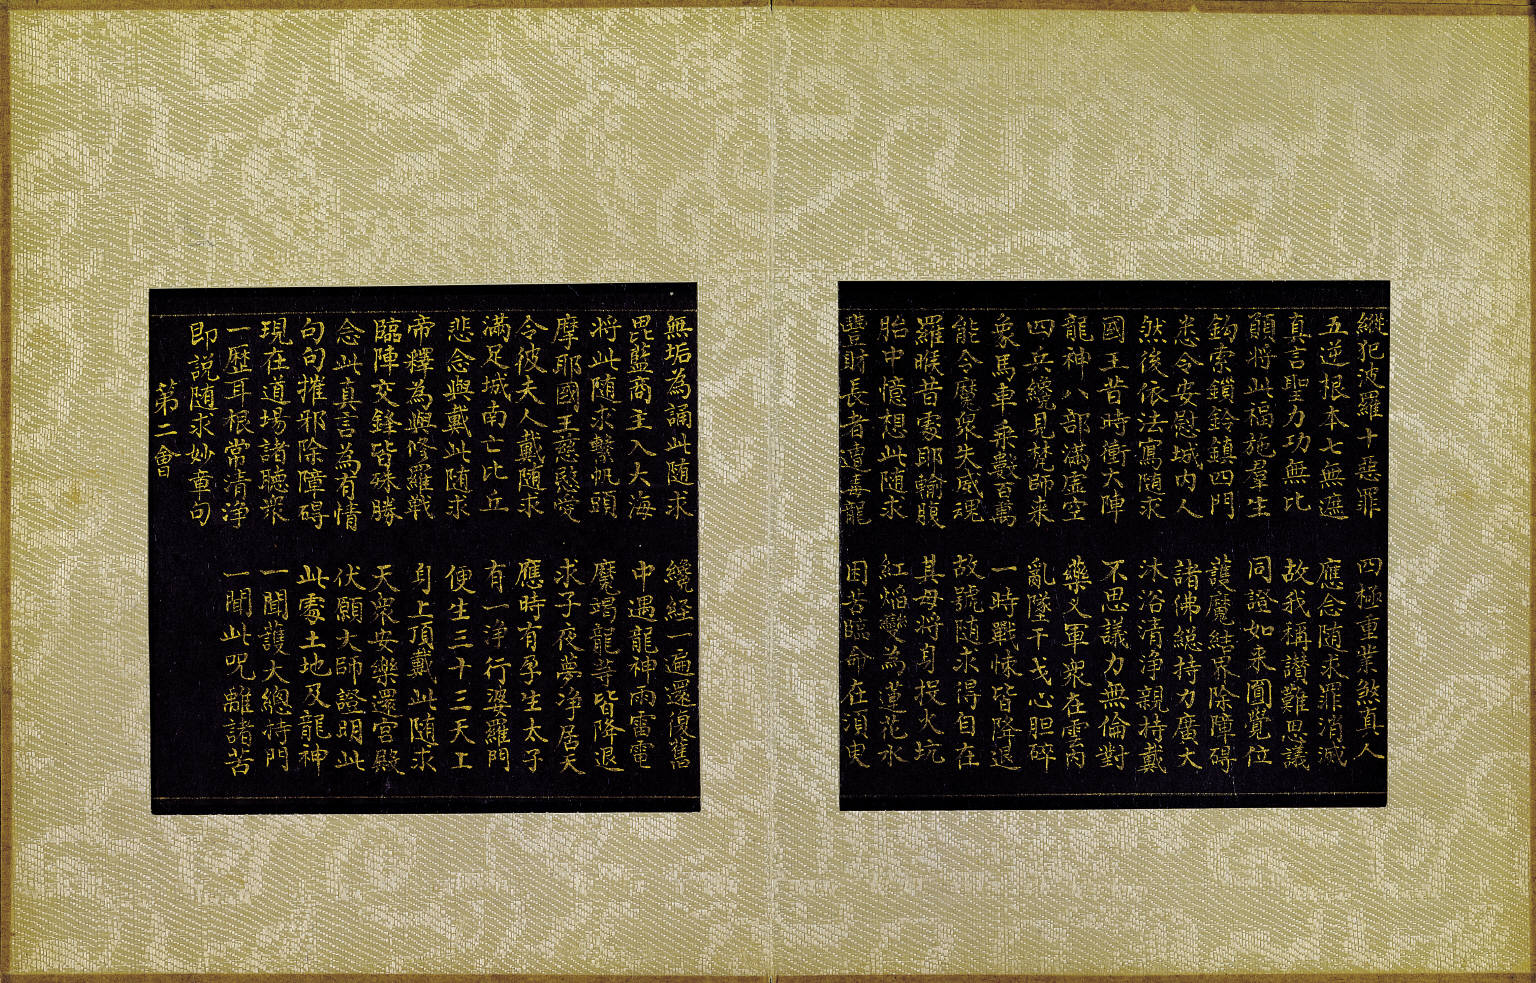 縱犯波羅十惡罪 四極重業煞真人
五逆根本七無遮 應念随求罪消滅
真言聖力功無比 故我稱讃難思議
願將此福施羣生 同證如来圓覺位
鈎索鎖鈴鎮四門 護魔結界除障碍
悉令安慰城内人 諸佛總持力廣大
然後依法寫随求 沐浴清浄親持戴
國王昔時衝大陣 不思議力無倫對
龍神八部滿虛空 藥叉軍衆在雲雨
四兵纔見梵師来 亂墜干戈心胆碎
象馬車乘數百萬 一時戰悚皆降退
能令魔衆失威魂 故號随求得自在
羅睺昔處耶輸腹 其母將身投火坑
胎中憶想此随求 紅焔變為蓮花水
豐財長者遭毒龍 困苦臨命在須臾
無垢為誦此随求 纔經一遍還復舊
毘藍商主入大海 中遇龍神雨雷電
将此随求繫帆頭 魔竭龍等皆降退
摩耶國王慈愍愛 求子夜夢浄居天
令彼夫人戴随求 應時有孕生太子
滿足城南亡比丘 有一浄行婆羅門
悲念與戴此随求 便生三十三天上
帝釋為與修羅戰 身上頂戴此随求
臨陣交鋒皆殊勝 天衆安樂還宮殿
念此真言為有情 伏願大師證明此
句句摧邪除障碍 此處土地及龍神
現在道場諸聽衆 一聞護大總持門
一歷耳根常清浄 一聞此呪離諸苦
即説随求妙章句
第二會